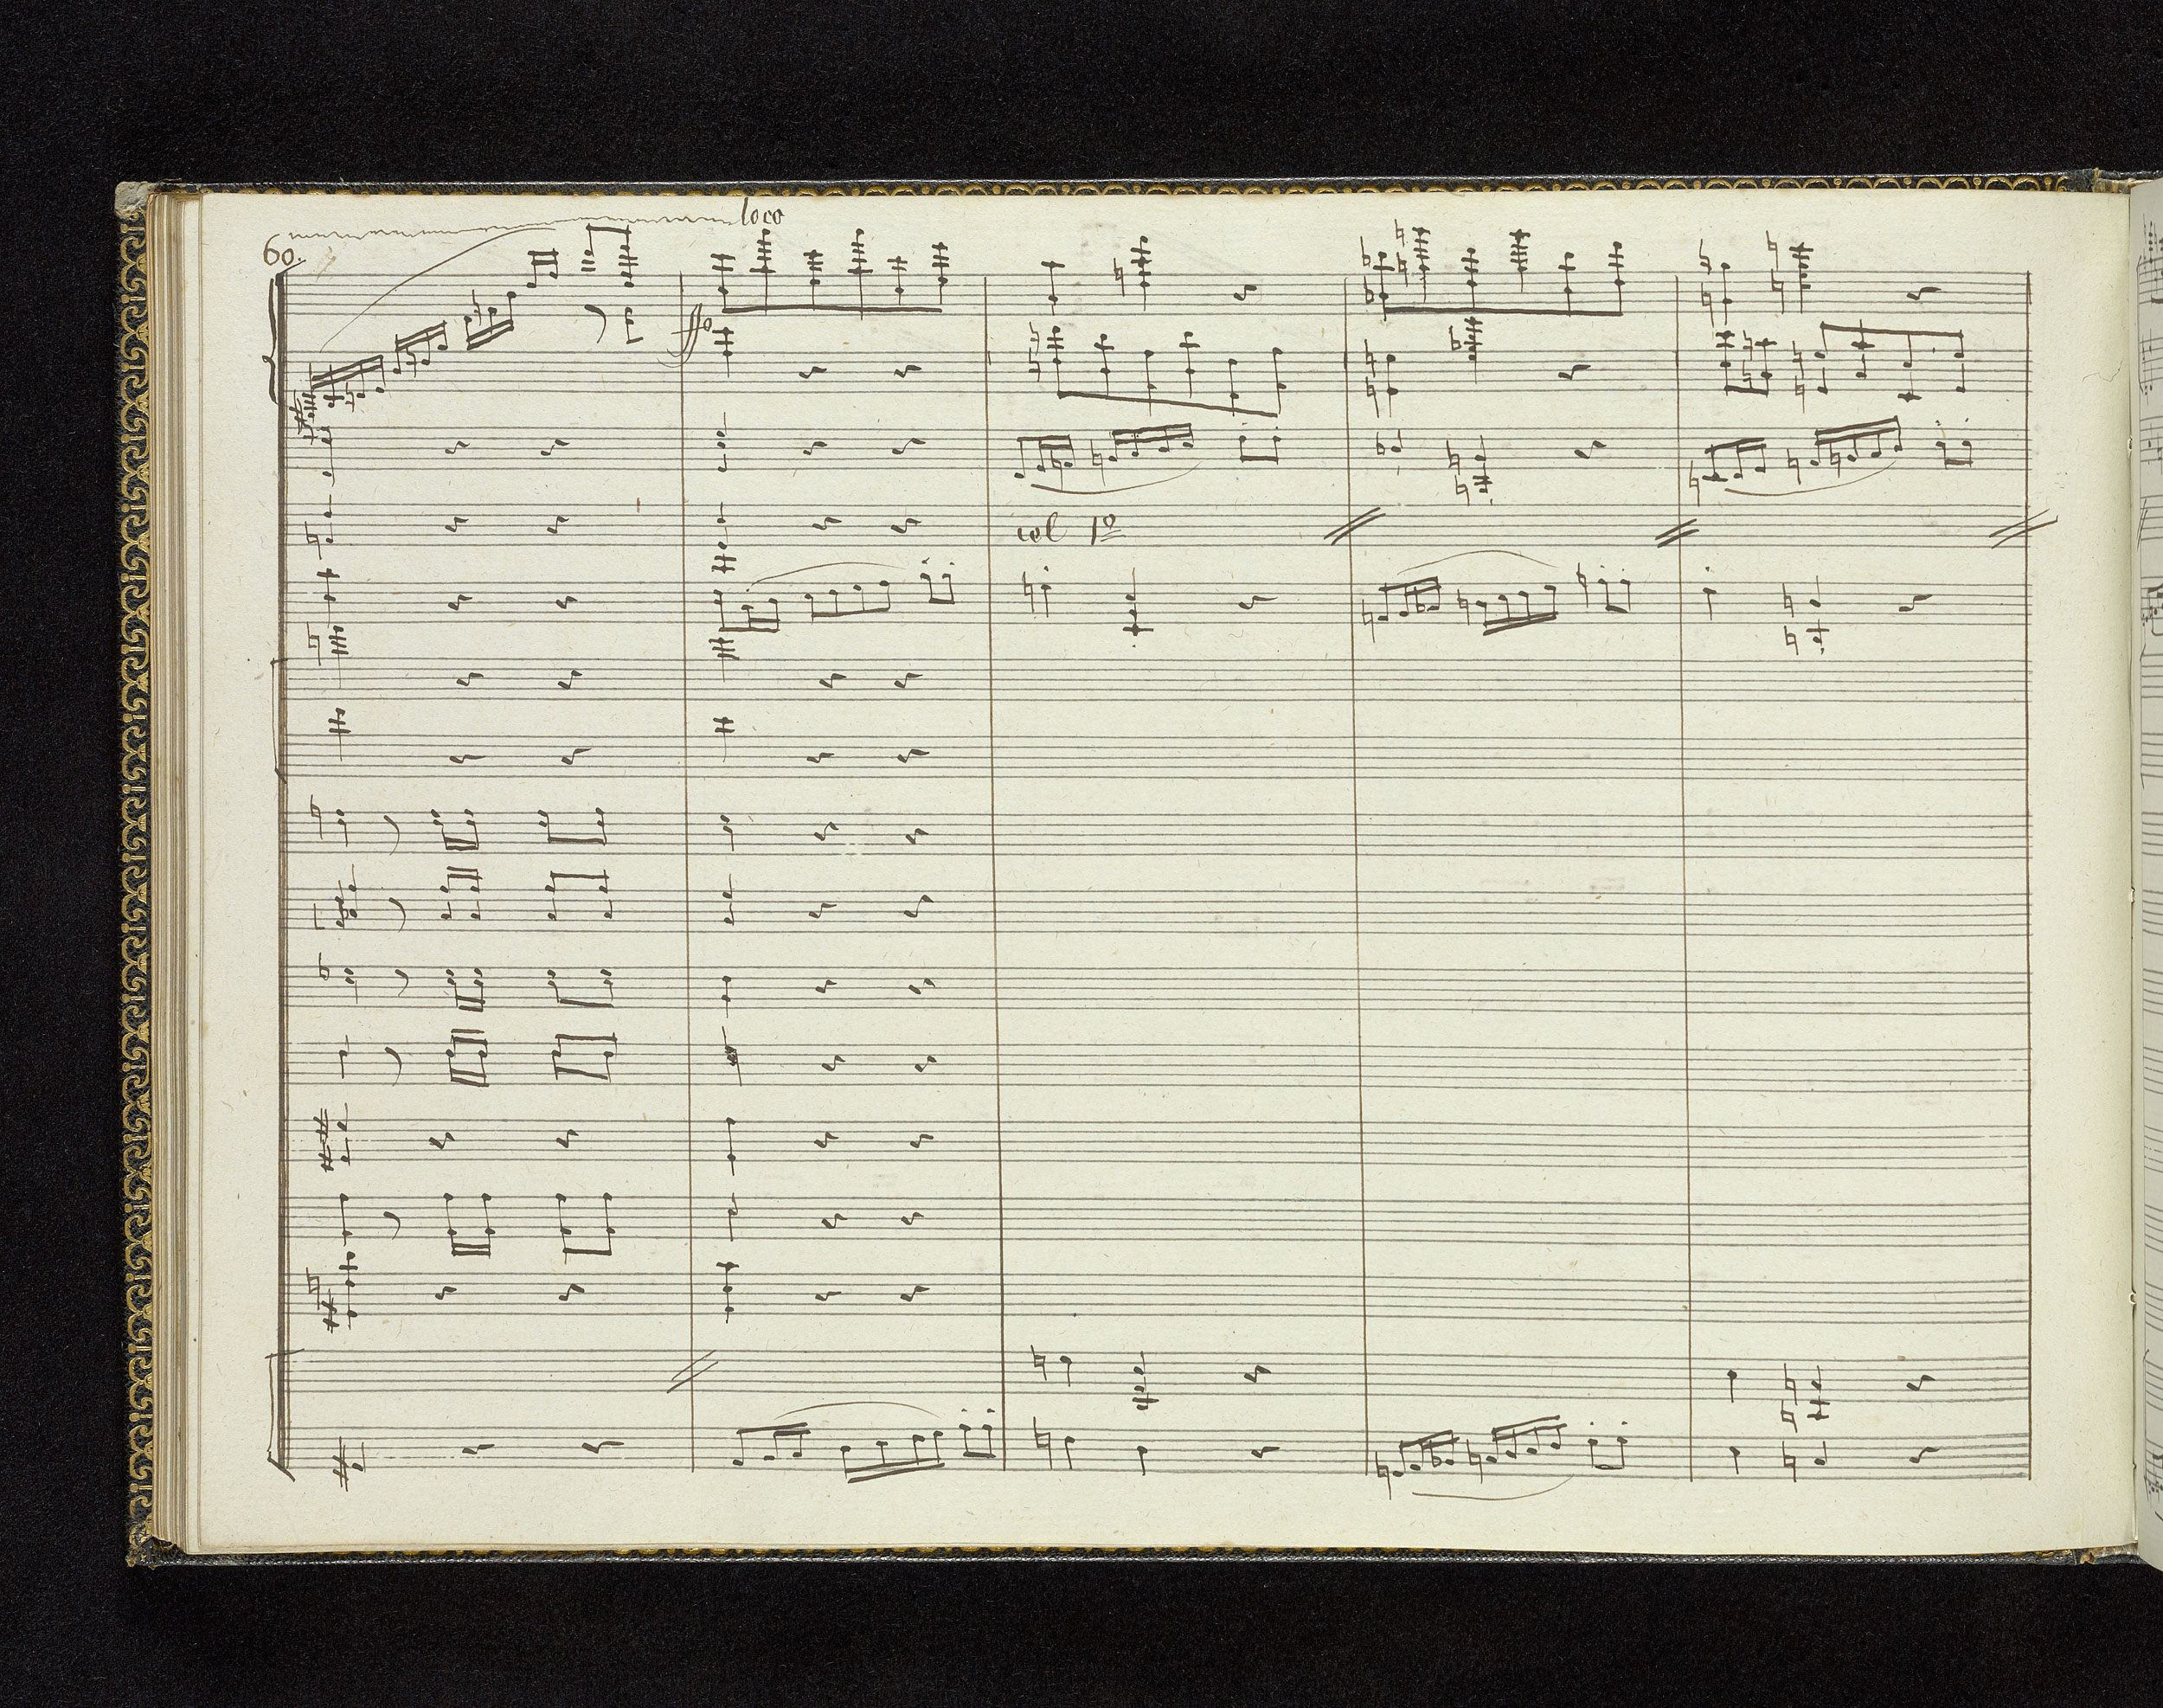 60.
loco
ffo
col 1º